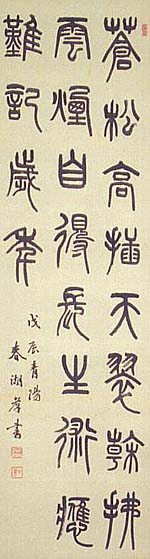 蒼松高插天翠幹拂
雲煙自得長生術應
難記歲年
戊辰青陽
春湖書